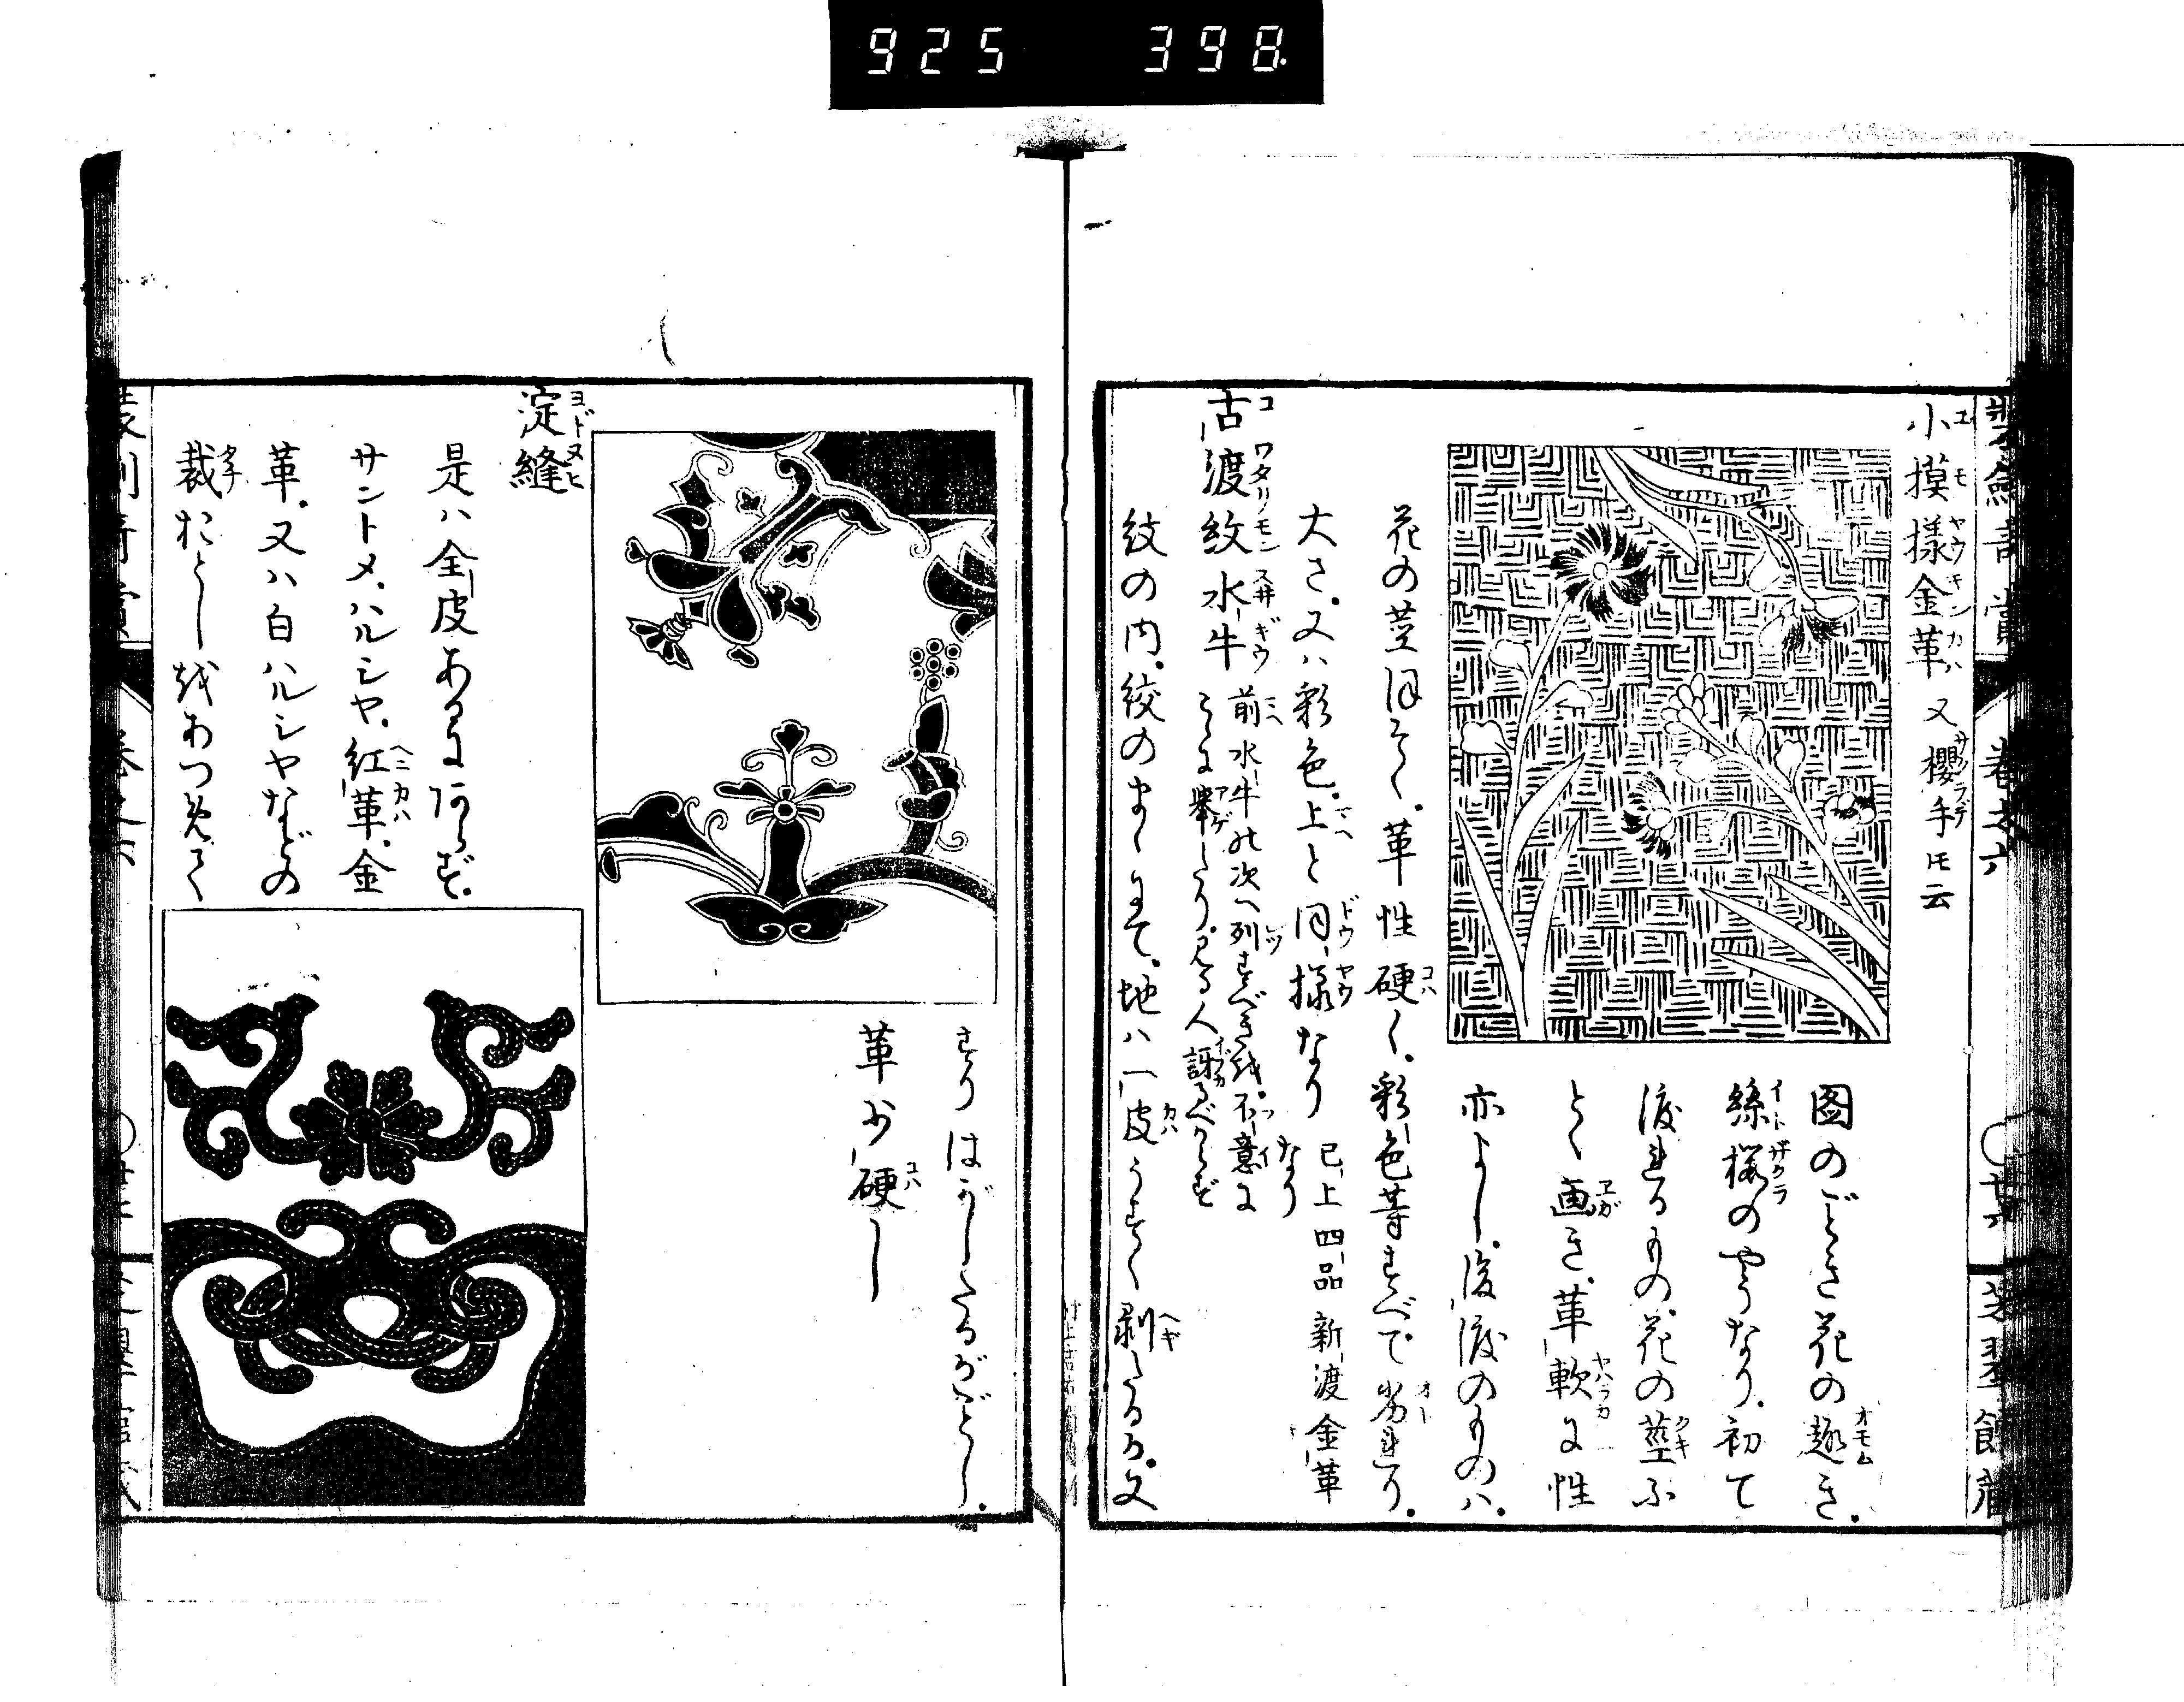 925 398
小摸様金革 又櫻手モ云
図のごとき花の趣き。
絲桜のやうなり。初て
渡れるもの。花の莖ふ
とく画き。革軟に性
亦よし。後渡のものハ。
花の莖ほそく。革性硬く。彩色等すべて劣れり。
大さ。又ハ彩色。上と同様なり 已上四品新渡金革なり
古渡紋水牛 前水牛の次へ列すべきを。不意に
こゝに挙たり。見る人訝るべからず
紋の内。絞のまゝにて。地ハ一皮うすく剥たる。又
すりはがしたるがごとし。
革少硬し
淀縫
是ハ全皮あるにあらず。
サントメ。ハルシヤ。紅革。金
革。又ハ白ハルシヤなどの
裁おとしをあつめて